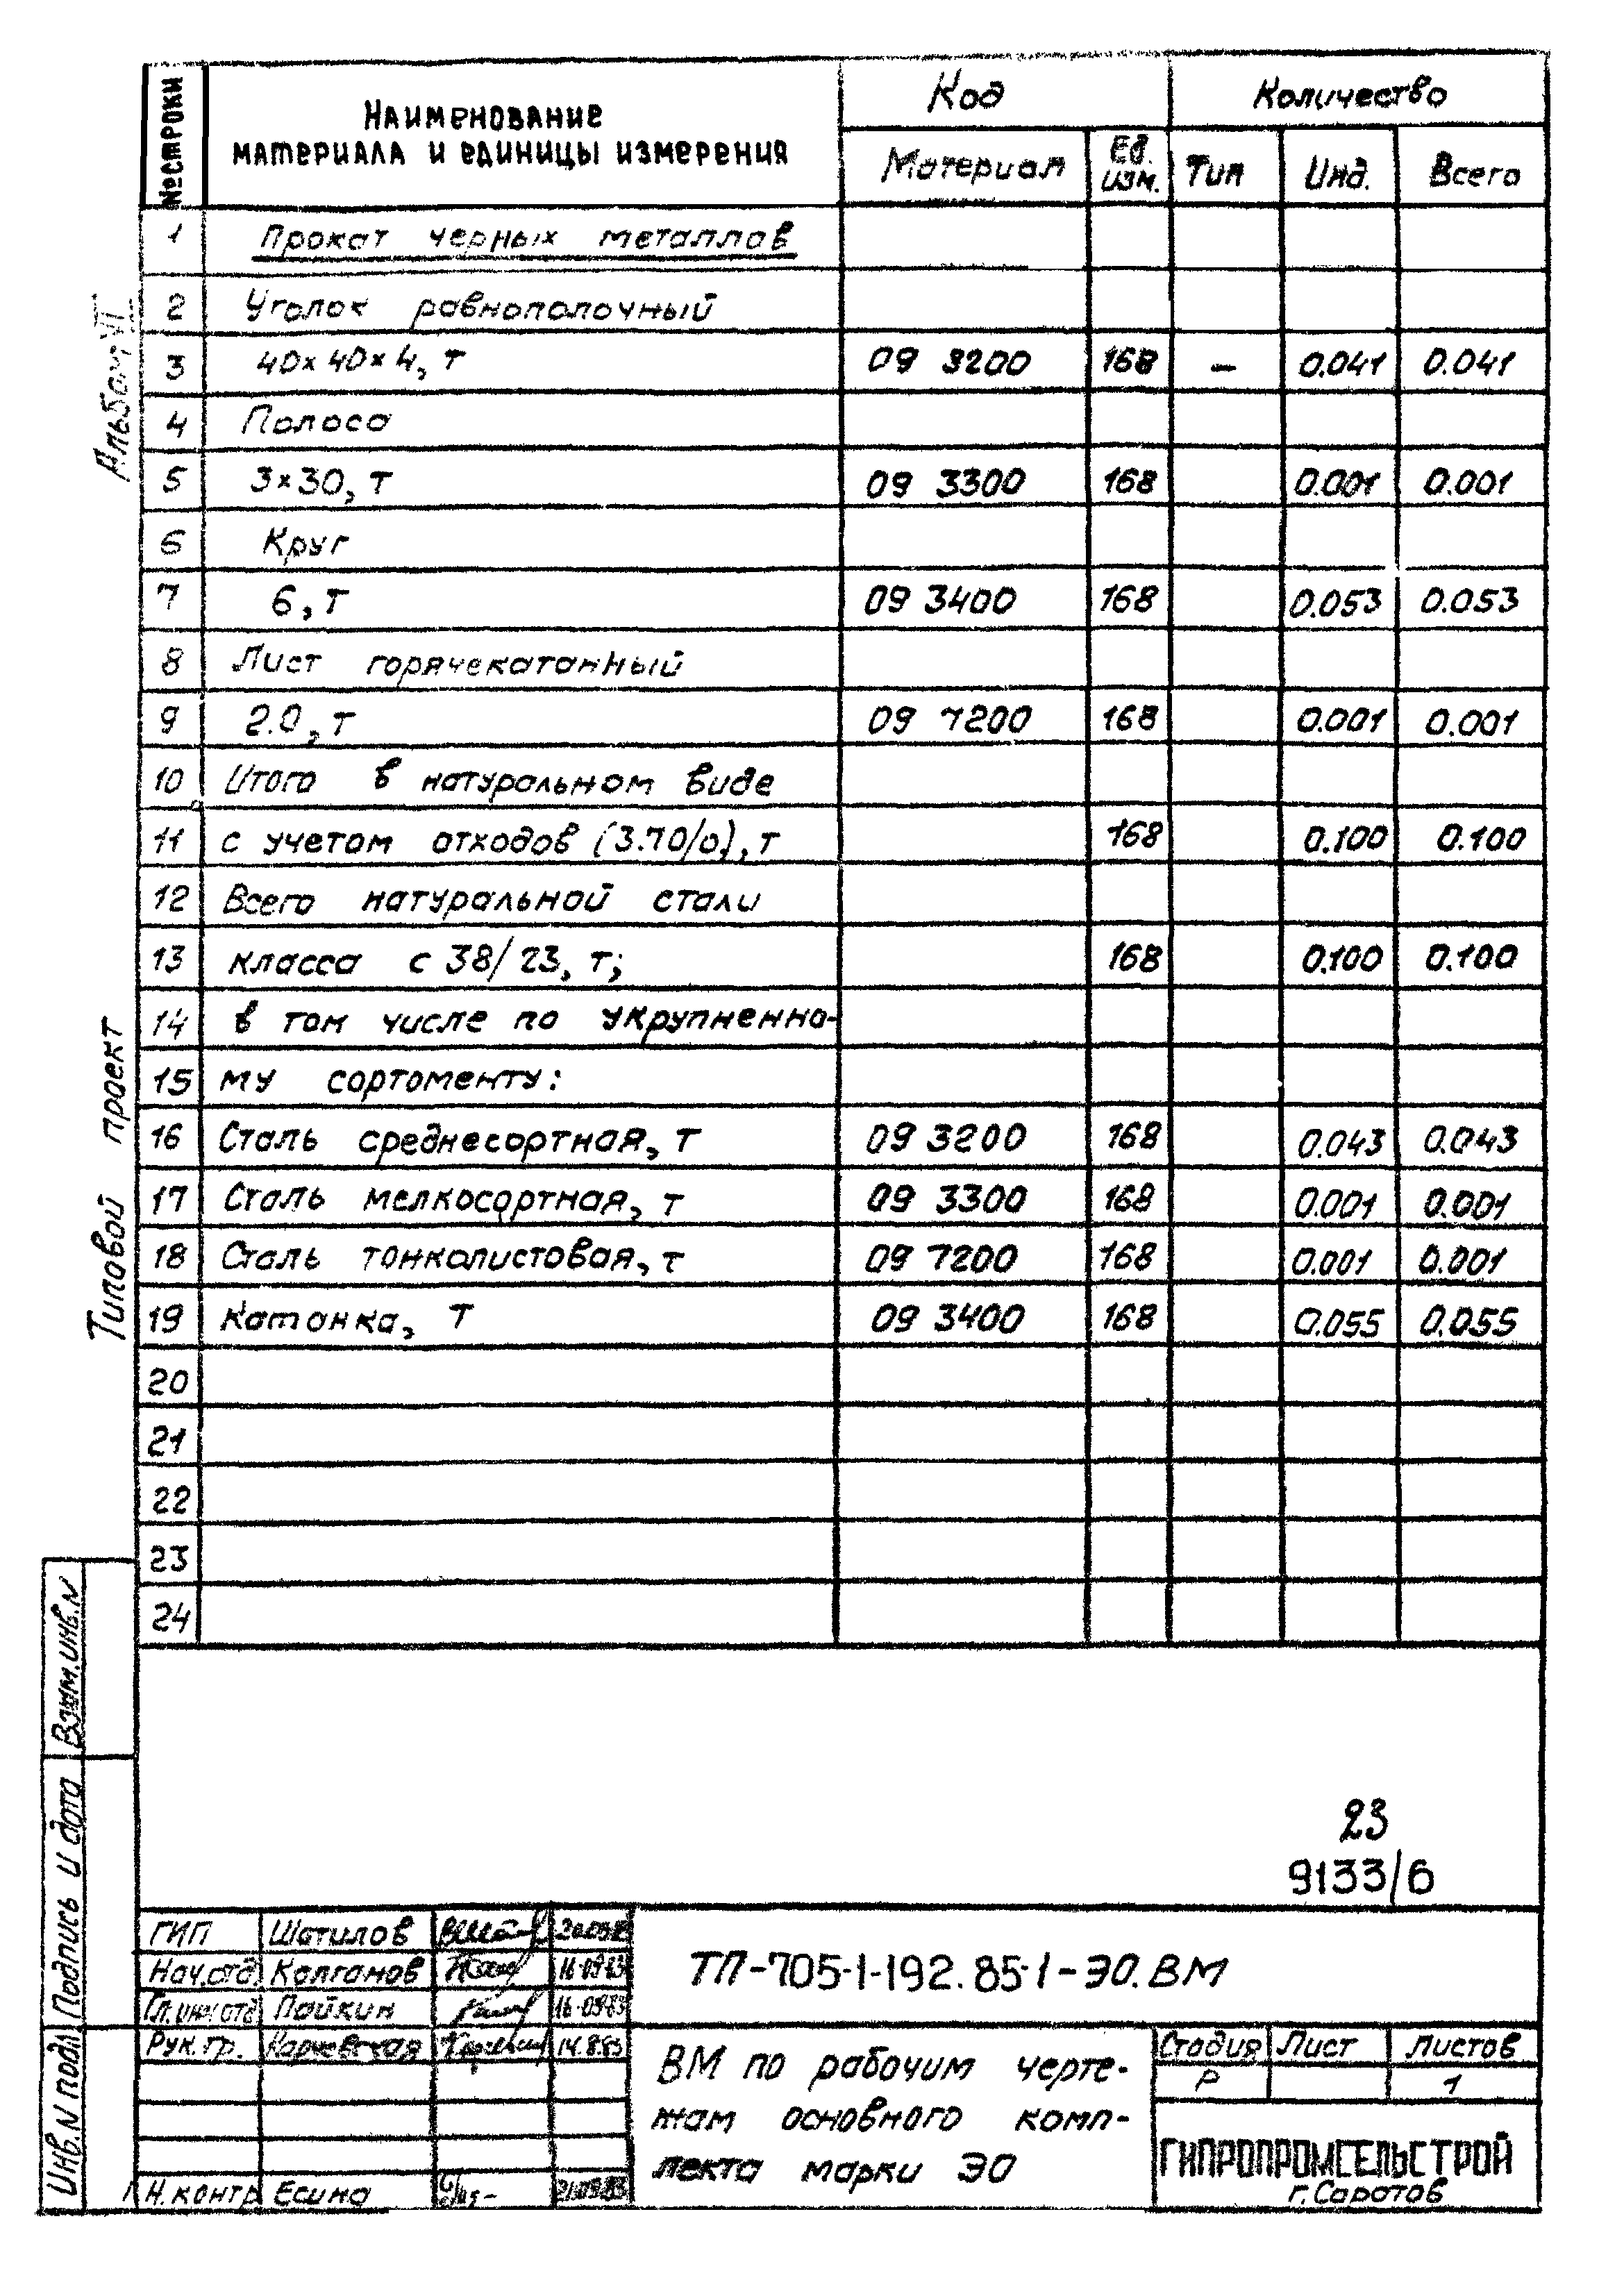 № строки
Наименование материала и единицы измерения
Код
Количество
Материал
Ед. изм.
Тип
Инд.
Всего
1 Прокат черных металлов
2 Уголок равнополочный
3 40×40×4, т 09 3200 168 – 0.041 0.041
4 Полоса
5 3×30, т 09 3300 168 0.001 0.001
6 Круг
7 6, т 09 3400 168 0.053 0.053
8 Лист горячекатанный
9 2.0, т 09 7200 168 0.001 0.001
10 Итого в натуральном виде
11 с учетом отходов (3.70/0), т 168 0.100 0.100
12 Всего натуральной стали
13 класса с 38/23, т; 168 0.100 0.100
14 в том числе по укрупненно-
15 му сортоменту:
16 Сталь среднесортная, т 09 3200 168 0.043 0.043
17 Сталь мелкосортная, т 09 3300 168 0.001 0.001
18 Сталь тонколистовая, т 09 7200 168 0.001 0.001
19 Катанка, т 09 3400 168 0.055 0.055
20
21
22
23
24
Альбом VI
Типовой проект
Взам. инв. N
Подпись и дата
Инв. N подл
23
9133/6
ГИП Шатилов
Нач. отд. Колганов 16.09.83
Гл. инж. отд Пайкин 16.09.83
Рук. гр. 14.8.83
Н. контр Есина
ТП-705-1-192.85-1-ЭО.ВМ
ВМ по рабочим черте-
жам основного комп-
лекта марки ЭО
Стадия Лист Листов
Р 1
ГИПРОПРОМСЕЛЬСТРОЙ
г. Саратов